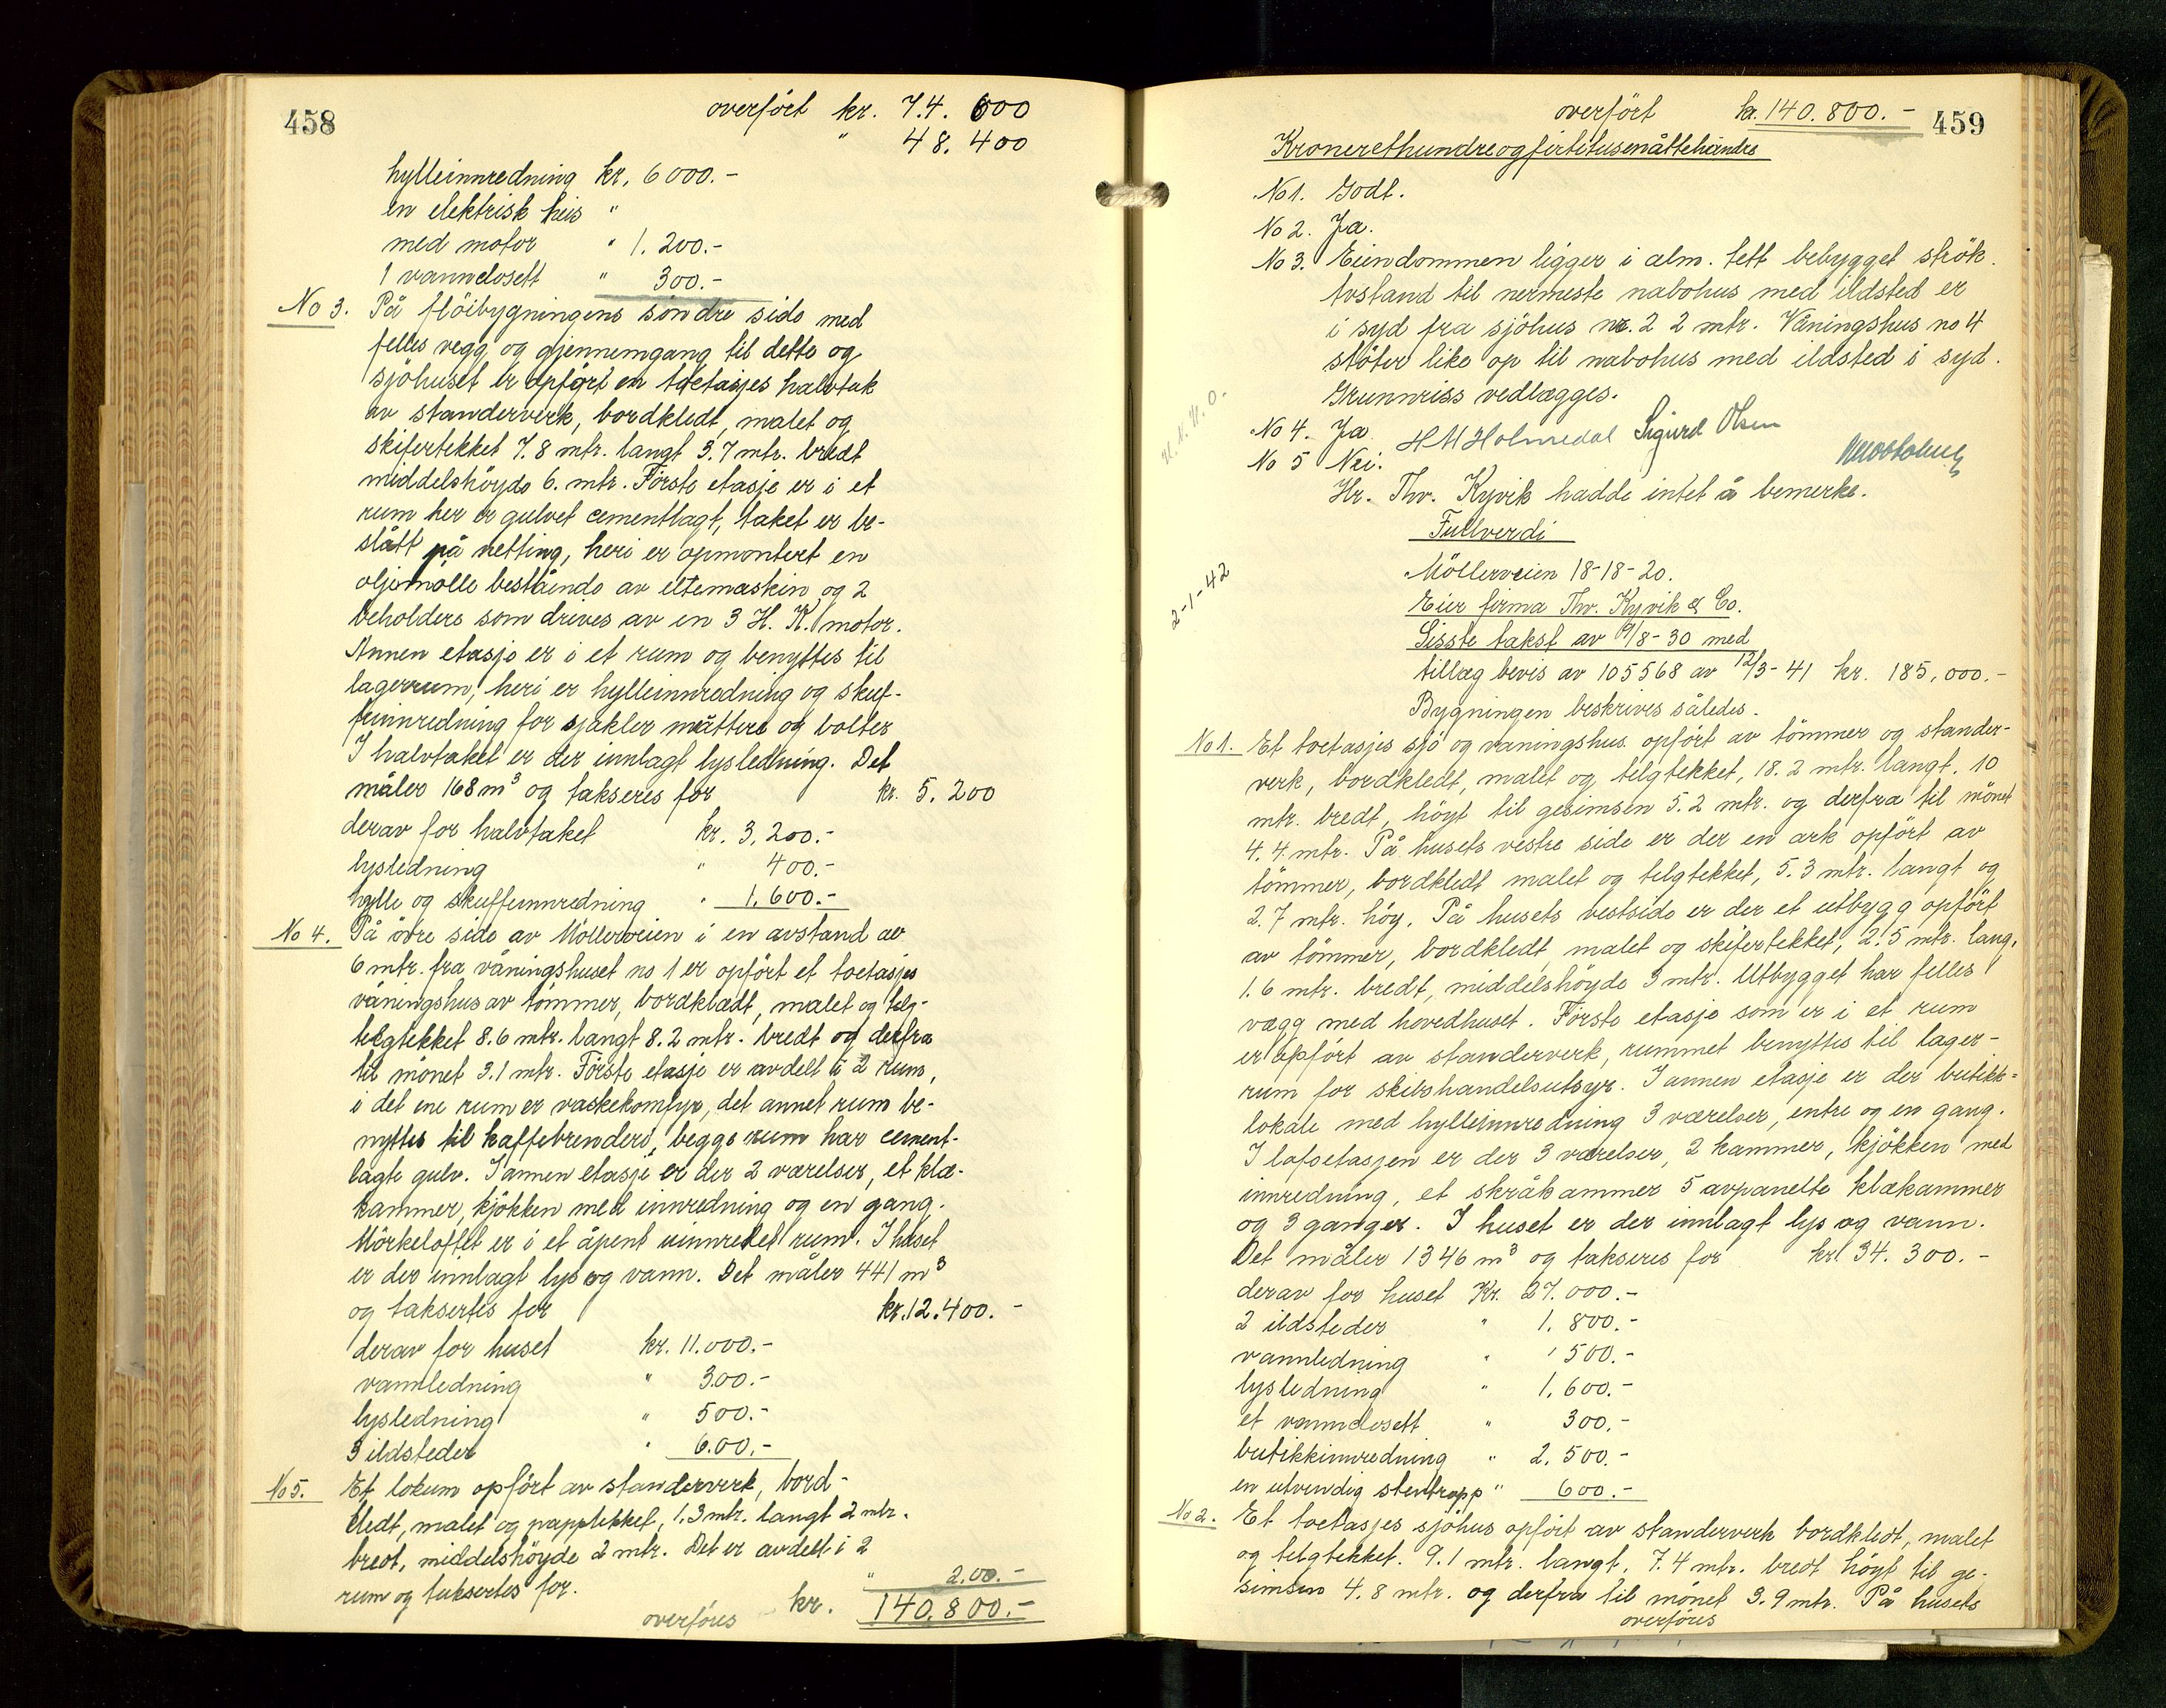 458
overført kr. 74.600
" 48.400
hylleinnredning kr. 6000.-
en elektrisk heis "
med motor " 1.200.-
1 vannclosett " 300.-
No 3. På flöibygningens söndre side med
felles vegg og gjennemgang til dette og
sjöhuset er opfört en toetasjes halvtak
av standerverk, bordkledt, malet og
skifertekket 7.8 mtr. langt 3.7 mtr. bredt
middelshöyde 6. mtr. Förste etasje er i et
rum her er gulvet cementlagt, taket er be-
slått på netting, heri er opmontert en
oljemölle bestående av eltemaskin og 2
beholdere som drives av en 3 H. K. motor.
Annen etasje er i et rum og benyttes til
lagerrum, heri er hylleinnredning og skuf-
feinnredning for sjakler muttere og bolter
I halvtaket er der innlagt lysledning. Det
måler 168 m³ og takseres for kr. 5.200
derav for halvtaket kr. 3.200.-
lysledning " 400.-
hylle og skuffeinnredning " 1.600.-
No 4. På övre side av Möllerveien i en avstand av
6 mtr. fra våningshuset no 1 er opfört et toetasjes
våningshus av tömmer, bordklædt, malet og telg-
telgtekket 8.6 mtr. langt 8.2 mtr. bredt og derfra
til mönet 3.1 mtr. Förste etasje er avdelt i 2 rum,
i det ene rum er vaskekomfyr, det annet rum be-
nyttes til kaffebrenderi, begge rum har cement-
lagte gulv. I annen etasje er der 2 værelser, et klæ-
kammer, kjökken med innredning og en gang.
Mörkeloftet er i et åpent uinnredet rum. I huset
er der innlagt lys og vann. Det måler 441 m³
og taksertes for kr. 12.400.-
derav for huset kr. 11.000.-
vannledning " 300.-
lysledning " 500.-
3 ildsteder " 600.-
No 5. Et lokum opfört av standerverk, bord-
kledt, malet og papptekket, 1.3 mtr. langt 2 mtr.
bredt, middelshöyde 2 mtr. Det er avdelt i 2
rum og taksertes for. " 200.-
overföres kr. 140.800.-
overfört kr. 140.800.- 459
Kronerethundreogfirtitusenåttehundre
No 1. Godt.
No 2. Ja.
No 3. Eiendommen ligger i alm. tett bebygget strök.
Avstand til nermeste nabohus med ildsted er
i syd fra sjöhus nr. 2 2 mtr. Våningshus no 4
stöter like op til nabohus med ildsted i syd.
Grunnriss vedlægges.
No 4. Ja. H M Holmedal Sigurd Olsen
No 5 Nei.
Hr. Thv. Kyvik hadde intet å bemerke.
Fullverdi
2-1-42
Möllerveien 18-18-20.
Eier firma Thv. Kyvik & Co.
Sisste takst av 9/8-30 med
tillæg bevis av 105568 av 12/3-41 kr. 185,000.-
Bygningen beskrives således.
No 1. Et toetasjes sjö og våningshus opfört av tömmer og stander-
verk, bordkledt, malet og telgtekket, 18.2 mtr. langt. 10
mtr. bredt, höyt til gesimsen 5.2 mtr. og derfra til mönet
4.4 mtr. På husets vestre side er der en ark opfört av
tömmer, bordkledt malet og telgtekket, 5.3 mtr. langt og
2.7 mtr. höy. På husets vestside er der et utbygg opfört
av tömmer, bordkledt, malet og skifertekket, 2.5 mtr. lang,
1.6 mtr. bredt, middelshöyde 3 mtr. Utbygget har felles
vægg med hovedhuset. Förste etasje som er i et rum
er opfört av standerverk, rummet benyttes til lager-
rum for skibshandelsutsyr. I annen etasje er der butikk=
lokale med hylleinnredning 3 værelser, entre og en gang.
I loftsetasjen er der 3 værelser, 2 kammer, kjökken med
innredning, et skråkammer 5 avpanelte klækammer
og 3 ganger. I huset er der innlagt lys og vann.
Det måler 1346 m³ og takseres for kr. 34.300.-
derav for huset Kr. 27.000.-
2 ildsteder " 1.800.-
vannledning " 500.-
lysledning " 1.600.-
et vannclosett " 300.-
butikkinnredning " 2.500.-
en utvendig stentrapp " 600.-
No 2. Et toetasjes sjöhus opfört av standerverk bordkledt, malet
og telgtekket. 9.1 mtr. langt, 7.4 mtr. bredt höyt til ge-
simsen 4.8 mtr. og derfra til mönet 3.9 mtr. På husets
overföres